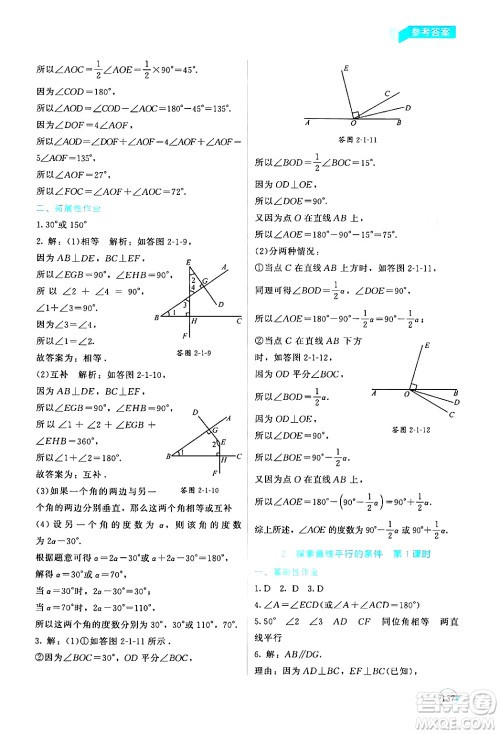 参考答案
所以∠AOC=1/2∠AOE=1/2×90°=45°.
因为∠COD=180°,
所以∠AOD=∠COD-∠AOC=180°-45°=135°.
因为∠DOF=4∠AOF,
所以∠AOD=∠DOF+∠AOF=4∠AOF+∠AOF=
5∠AOF=135°,
所以∠AOF=27°,
所以∠FOC=∠AOF+∠AOC=72°.
二、拓展性作业
1.30°或150°
2.解:(1)相等 解析:如答图2-1-9.
因为AB⊥DE,BC⊥EF,
所以∠EGB=∠EHB=90°,
所以∠1+∠3=90°,
∠2+∠4=90°.
因为∠3=∠4,
所以∠1=∠2.
故答案为:相等.
答图2-1-9
(2)互补 解析:如答图2-1-10.
因为AB⊥DE,BC⊥EF,
所以∠EGB=90°,
∠EHB=90°,
所以∠1+∠2=180°.
故答案为:互补.
答图2-1-10
(3)如果一个角的两边与另一
个角的两边分别垂直,那么这两个角相等或互补.
(4)设另一个角的度数为α,则这个角的度数是2α-30°.
根据题意可得α=2α-30°或α+2α-30°=180°,
解得α=30°或α=70°.
当α=30°时,2α-30°=30°,
当α=70°时,2α-30°=110°,
所以这两个角的度数为30°和30°或70°和110°.
3.解:(1)①如答图2-1-11.
②因为∠BOC=30°,OD平分∠BOC,
E
C
D
A
O
B
答图2-1-11
所以∠BOD=1/2∠BOC=15°.
因为OD⊥OE,
所以∠DOE=90°.
又因为点O在直线AB上,
所以∠AOE=180°-90°-15°=75°.
(2)分两种情况:
①当点C在直线AB上方时,如答图2-1-11,
同理可得∠BOD=1/2α,
所以∠AOE=180°-90°-1/2α=90°-1/2α.
②当点C在直线AB下
方时,如答图2-1-12.
因为OD平分∠BOC,
所以∠BOD=1/2α.
因为OD⊥OE,
所以∠DOE=90°,
所以∠BOE=90°-1/2α.
答图2-1-12
又因为点O在直线AB上,
所以∠AOE=180°-(90°-1/2α)=90°+1/2α.
综上所述,∠AOE的度数为90°-1/2α或90°+1/2α.
2 探索直线平行的条件 第1课时
一、基础性作业
1.D 2.D 3.D
4.∠A=∠ECD(答案不唯一)
5.50° ∠2 ∠3 AD CF 同位角相等 两直
线平行
6.解:AB∥DG.
理由:因为AD⊥BC,EF⊥BC(已知),